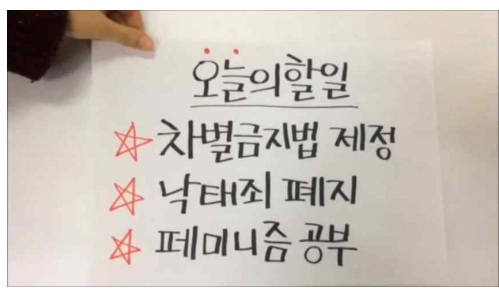 오늘의할일
차별금지법 제정
낙태죄 폐지
페미니즘 공부